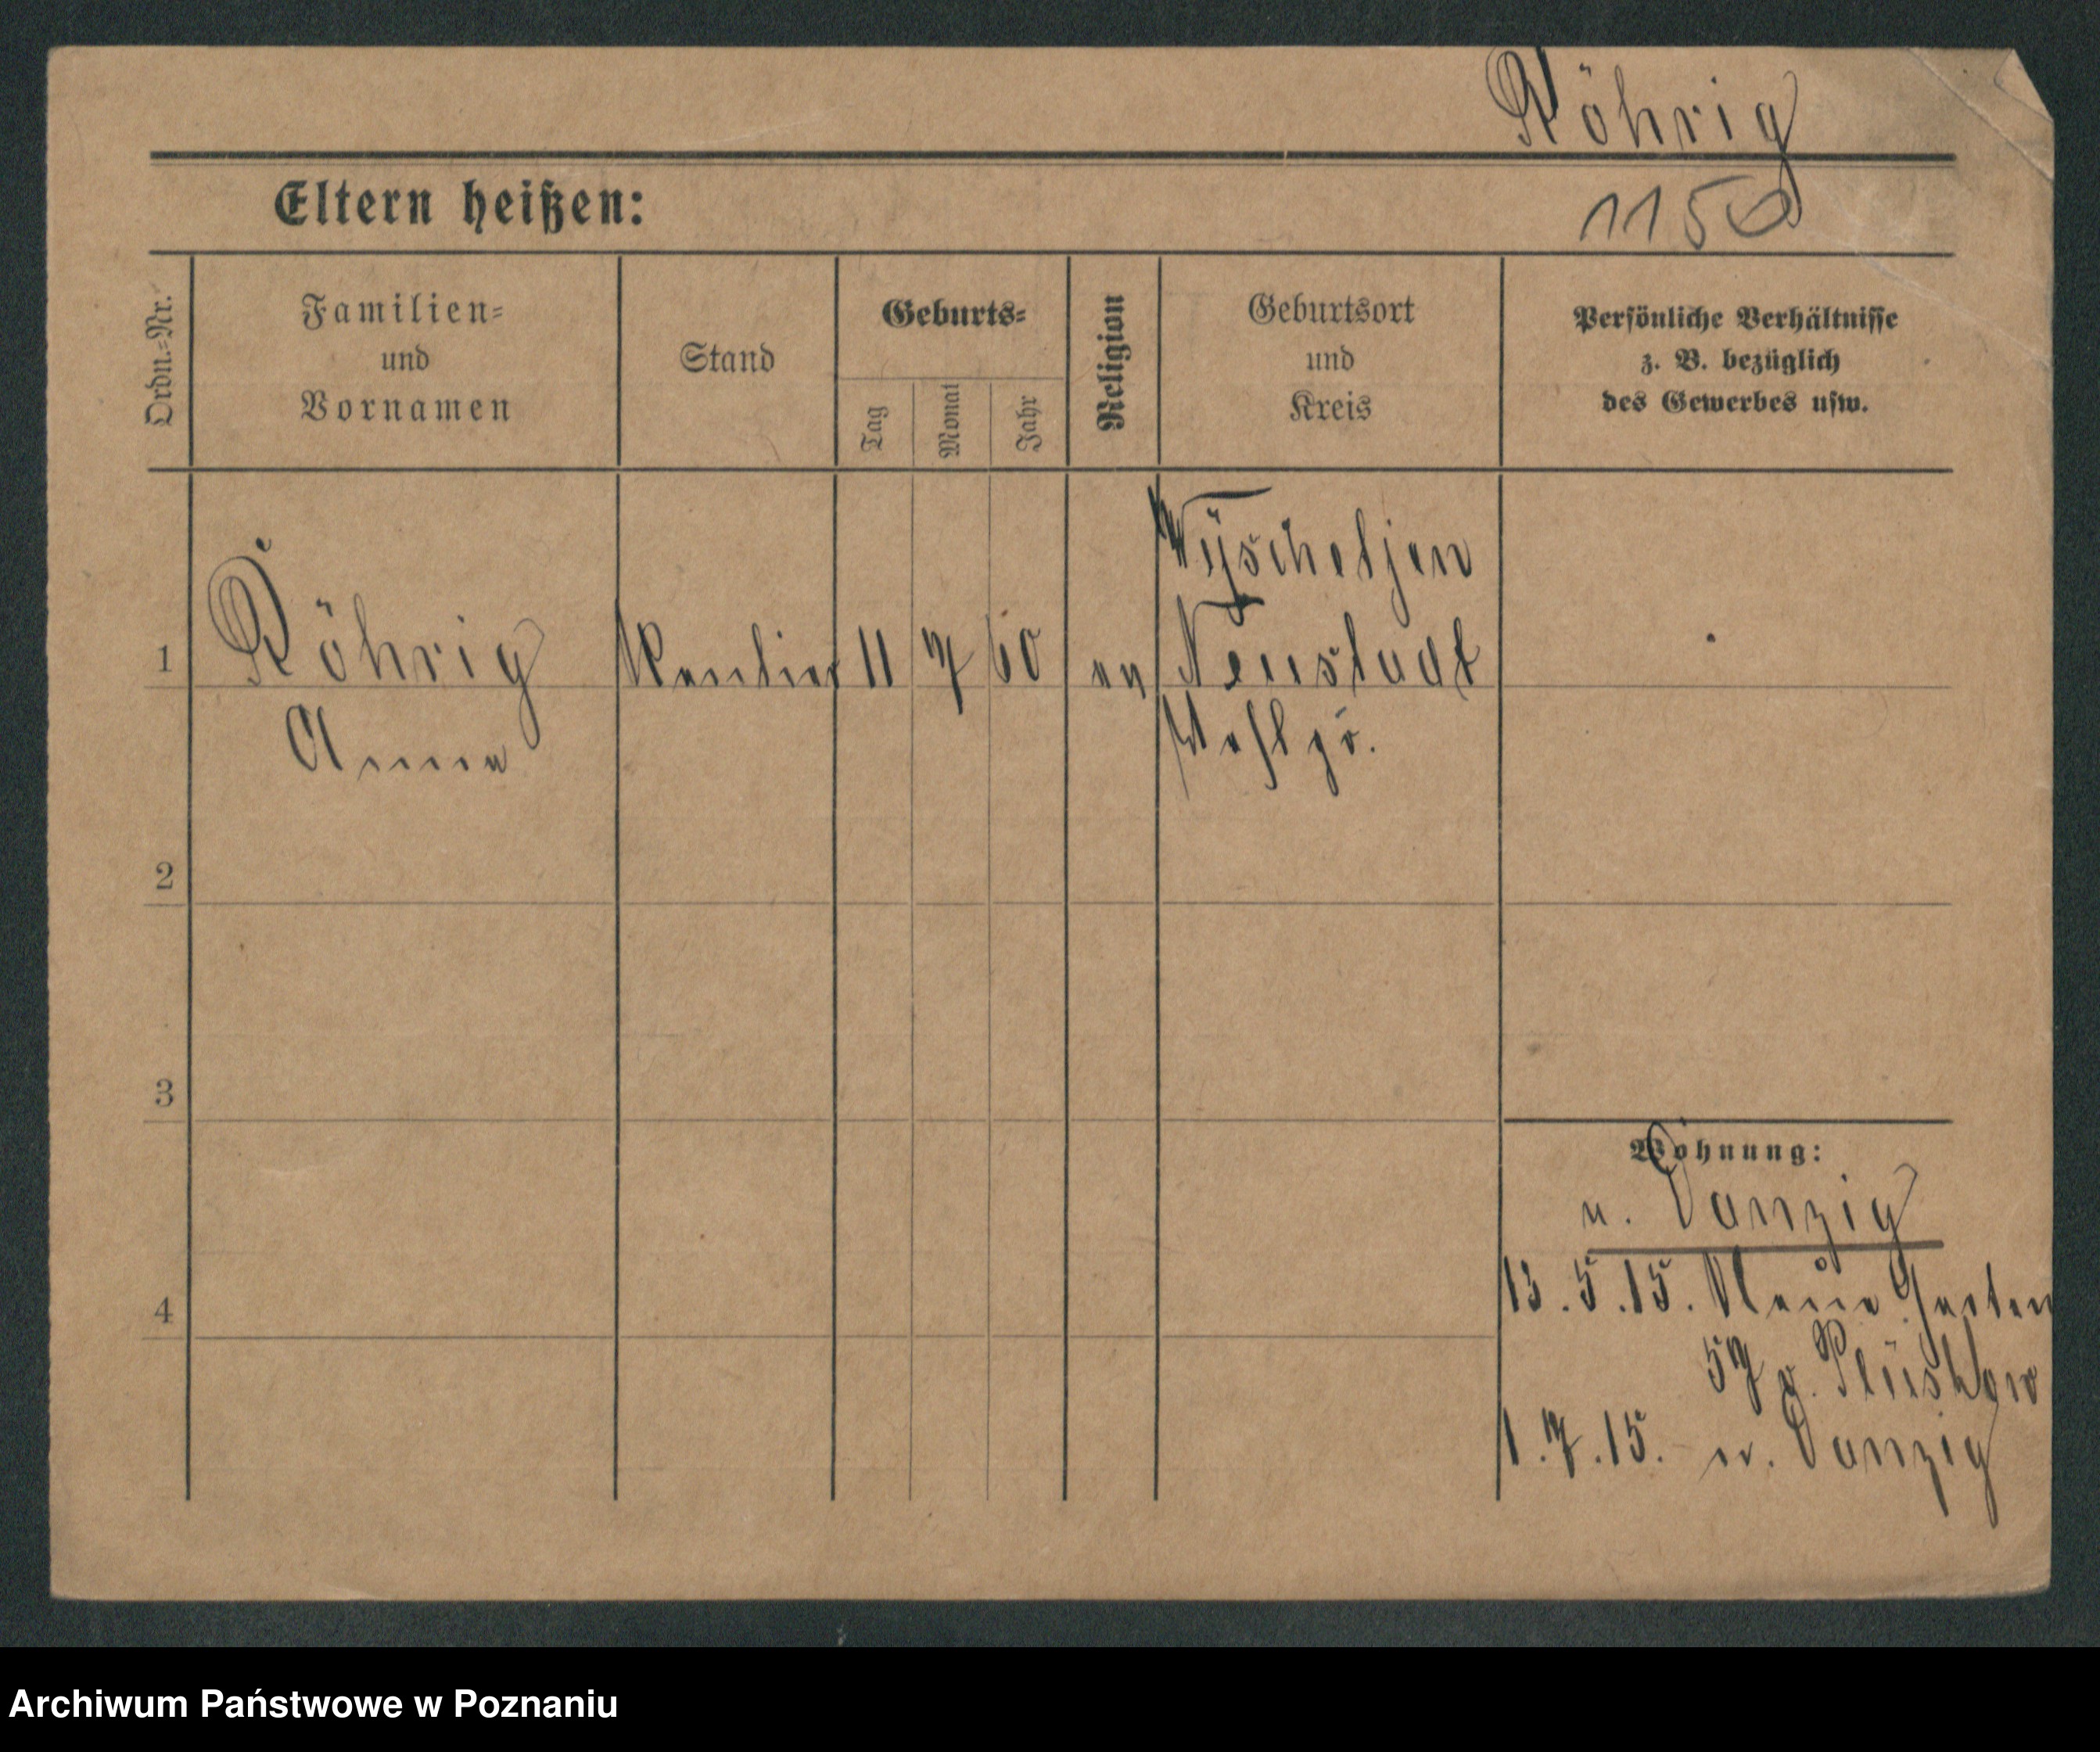 Röhrig
Eltern heißen:
1150
Ordn.=Nr.
Familien=
und
Vornamen
Stand
Geburts=
Tag
Monat
Jahr
Religion
Geburtsort
und
Kreis
Persönliche Verhältnisse
z. B. bezüglich
des Gewerbes usw.
1
Röhrig
Anna
Rentier
11
7
60
ev
Neustadt
2
3
4
Wohnung:
n. Danzig
13.5.15. Neue Garten
57 v. Plüskow
1.7.15. n. Danzig
Archiwum Państwowe w Poznaniu